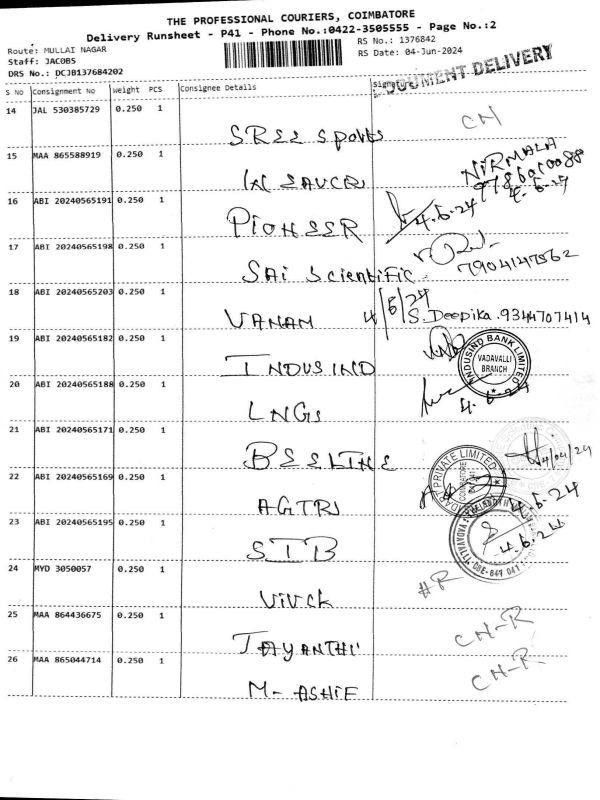 THE PROFESSIONAL COURIERS, COIMBATORE
Delivery Runsheet - P41 - Phone No.:0422-3505555 - Page No.:2
Route: MULLAI NAGAR
RS No.: 1376842
Staff: JACOB5
RS Date: 04-Jun-2024
DRS No.: DCJB137684202
DOCUMENT DELIVERY
S No Consignment No Weight PCS Consignee Details
14 JAL 530385729 0.250 1
SREE Sports CN
15 MAA 865588919 0.250 1
NIRMALA
4.6.24
16 ABI 20240565191 0.250 1
PIONEER 4.6.24
17 ABI 20240565198 0.250 1
SAi Scientific
18 ABI 20240565203 0.250 1
VANAM 4/6/24 S. Deepika. 9344707414
19 ABI 20240565182 0.250 1
INDUSIND
INDUSIND BANK LIMITED
VADAVALLI
BRANCH
20 ABI 20240565188 0.250 1
LNGS 4.6.24
21 ABI 20240565171 0.250 1
BEELINE
PRIVATE LIMITED
22 ABI 20240565169 0.250 1
4.6.24
23 ABI 20240565195 0.250 1
STB 4.6.24
24 MYD 3050057 0.250 1
#R
25 MAA 864436675 0.250 1
JAYANTHI CN-R
26 MAA 865044714 0.250 1
CN-R